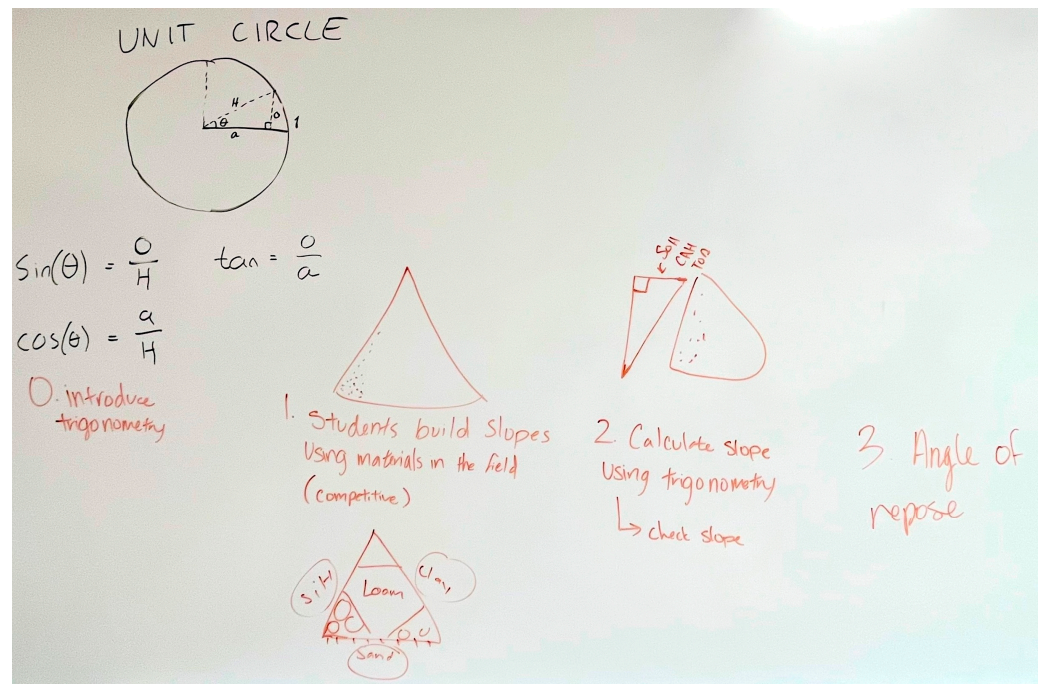 UNIT CIRCLE
H
θ
o
a
1
Sin(θ) = O/H
tan = o/a
cos(θ) = a/H
0. introduce
trigonometry
1. Students build Slopes
Using materials in the field
(competitive)
Silt
Loam
Clay
Sand
SOH
CAH
TOA
2. Calculate slope
Using trigonometry
↳ check slope
3. Angle of
repose